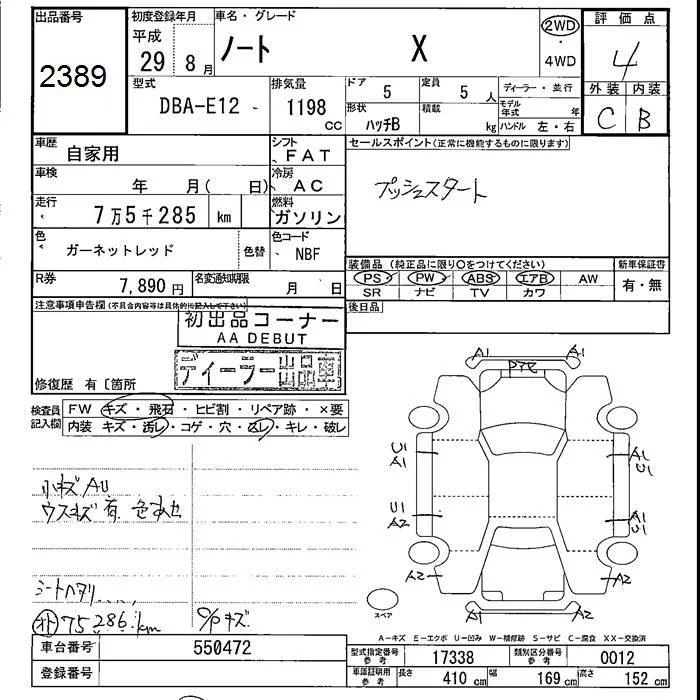 出品番号
2389
初度登録年月
平成
29 8月
車名・グレード
ノート X
2WD
・
4WD
評価点
4
外装 内装
C B
型式
DBA-E12 -
排気量
1198
CC
ドア 5
定員 5 人
形状 ハッチB
積載 kg
ディーラー・並行
モデル年式 年
ハンドル 左・右
車歴 自家用
シフト FAT
車検 年 月( 日)
冷房 AC
走行 7万5千285 km
燃料 ガソリン
色 ガーネットレッド 色替
色コード NBF
R券 7,890円
名変通知期限 月 日
セールスポイント(正常に機能するものに限ります)
プッシュスタート
装備品(純正品に限り○をつけてください)
新車保証書
PS PW ABS エアB AW
SR ナビ TV カワ
有・無
後日品
注意事項申告欄(不具合内容等は具体的に記入して下さい)
初出品コーナー
AA DEBUT
ディーラー出品車
修復歴 有〔箇所
検査員記入欄
FW キズ・飛石・ヒビ割・リペア跡・×要
内装 キズ・汚レ・コゲ・穴・スレ・キレ・破レ
小キズAU
ウスキズ有 色あせ
シートヘタリ
75286km
C/Pキズ
A1 A1
U1
A1
A1
U1
U1
A2
A1
U1
A2 A2
A1 A1
スペア
A-キズ E-エクボ U-凹み W-補修跡 S-サビ C-腐食 XX-交換済
車台番号 550472
登録番号
型式指定番号 参考 17338
類別区分番号 参考 0012
車庫証明用 参考
長さ 410 cm
幅 169 cm
高さ 152 cm